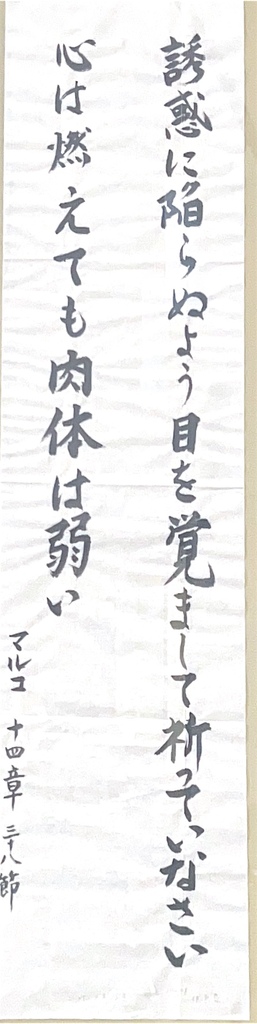 誘惑に陥らぬよう目を覚まして祈っていなさい
心は燃えても肉体は弱い
マルコ 十四章 三十八節